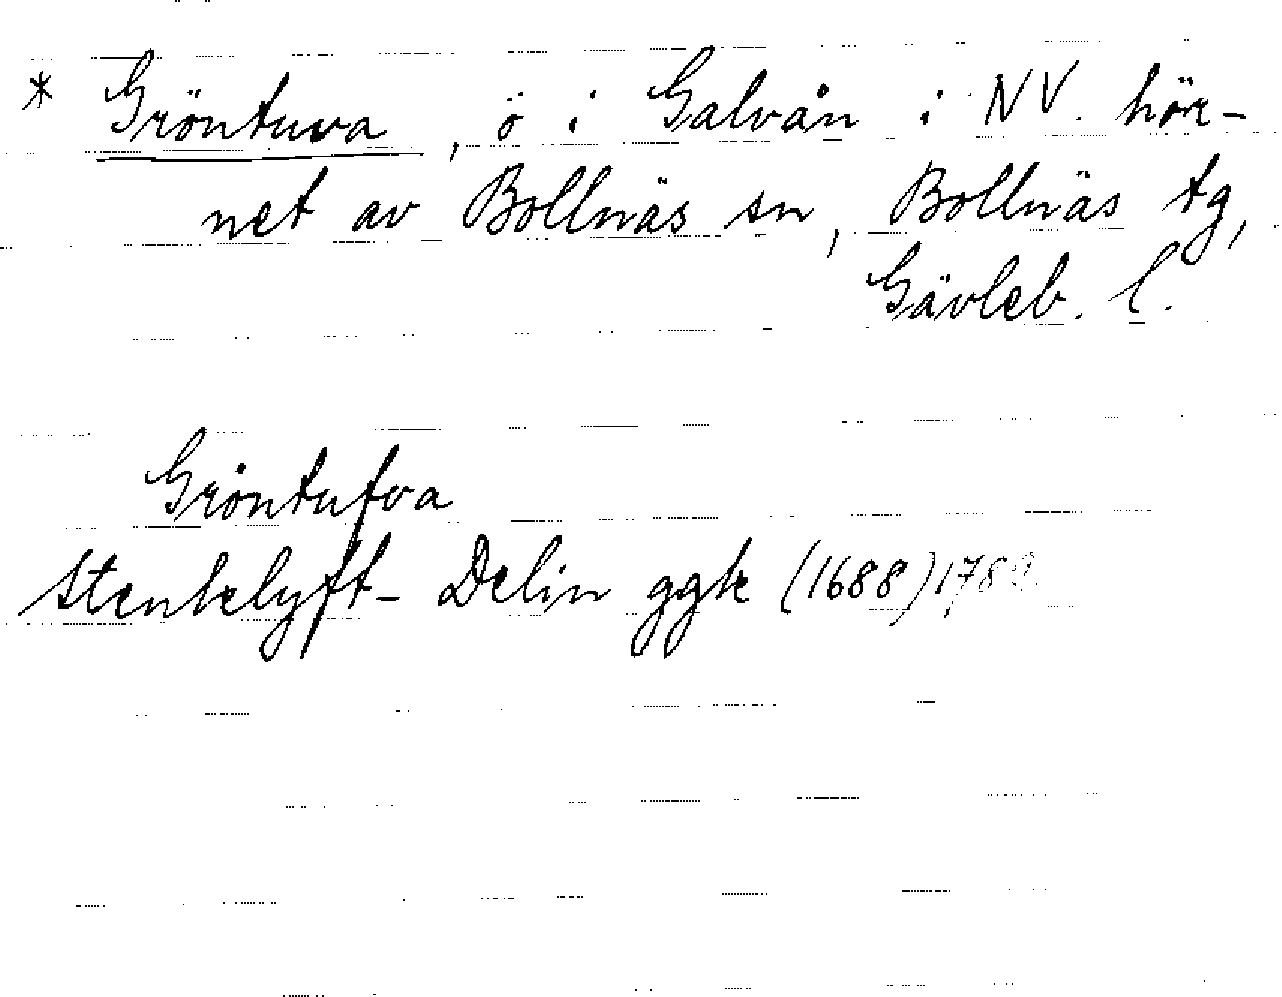 * Gröntuva, ö i Galvån i NV. hör-
net av Bollnäs sn, Bollnäs tg,
Gävleb. l.
Gröntufva
Stenklyft- Delin ggk (1688)